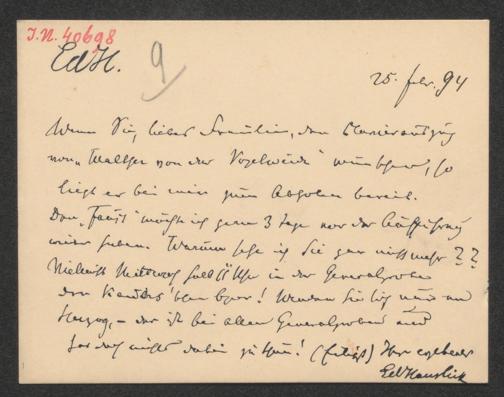 I.N. 40698
EdH. 9
25. febr. 94
Wenn Sie, liebes Fräulein, den Clavierauszug
von „Walther von der Vogelweide" wünschen, so
liegt er bei mir zum Abholen bereit.
Den „Faust" möchte ich gern 3 Tage vor der Aufführung
wieder haben. Warum sehe ich Sie gar nicht mehr??
Vielleicht Mittwoch halb 11 Uhr in der Generalprobe
des! Wenden Sie sich nur an
Herzog, – der ist bei allen Generalproben und
hat doch nichts dabei zu thun! Ihr ergebener
EdHanslick